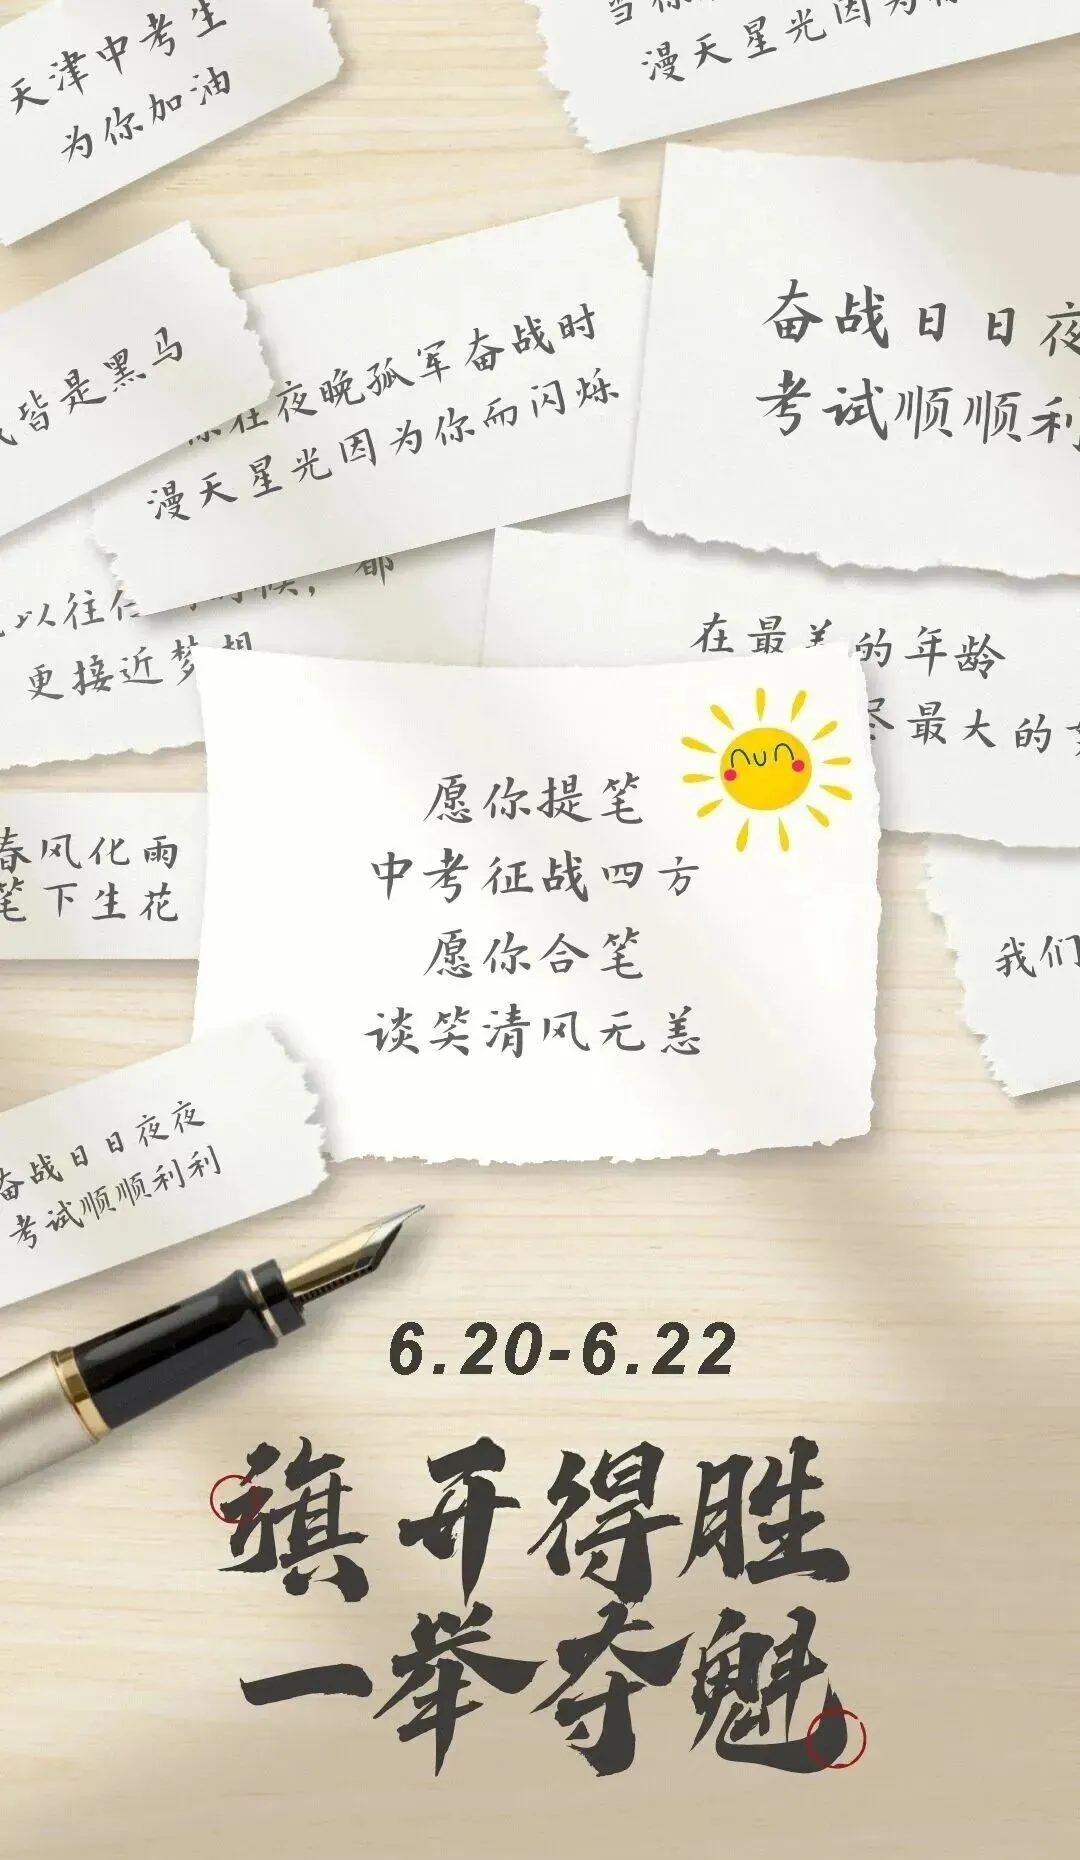 天津中考生
为你加油
漫天星光因为你
奋战日日夜
考试顺顺利
皆是黑马
你在夜晚孤军奋战时
漫天星光因为你而闪烁
以往
时候，都
更接近梦想
在最美的年龄
尽最大的
愿你提笔
中考征战四方
愿你合笔
谈笑清风无恙
春风化雨
笔下生花
我们
奋战日日夜夜
考试顺顺利利
6.20-6.22
旗开得胜
一举夺魁